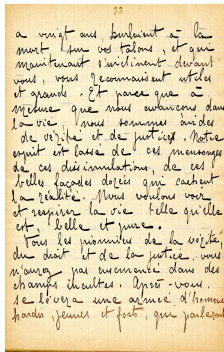 23
a vingt ans, hurlaient à la
mort sur vos talons, et qui
maintenant s'inclinent devant
vous, vous reconnaissent utiles
et grands. Et parce que à
mesure que nous avançons dans
la vie, nous sommes avides
de vérité et de justice. Notre
esprit est lassé de ces mensonges
de ces dissimulations, de ces
belles façades dorées qui cachent
la réalité. Nous voulons voir
et respirer la vie telle qu'elle
est, belle et pure.
Vous les pionniers de la vérité,
du droit et de la justice, vous
n'aurez pas ensemencé dans des
champs incultes. Après vous,
se lèvera une armée d'hommes
hardis, jeunes et forts, qui